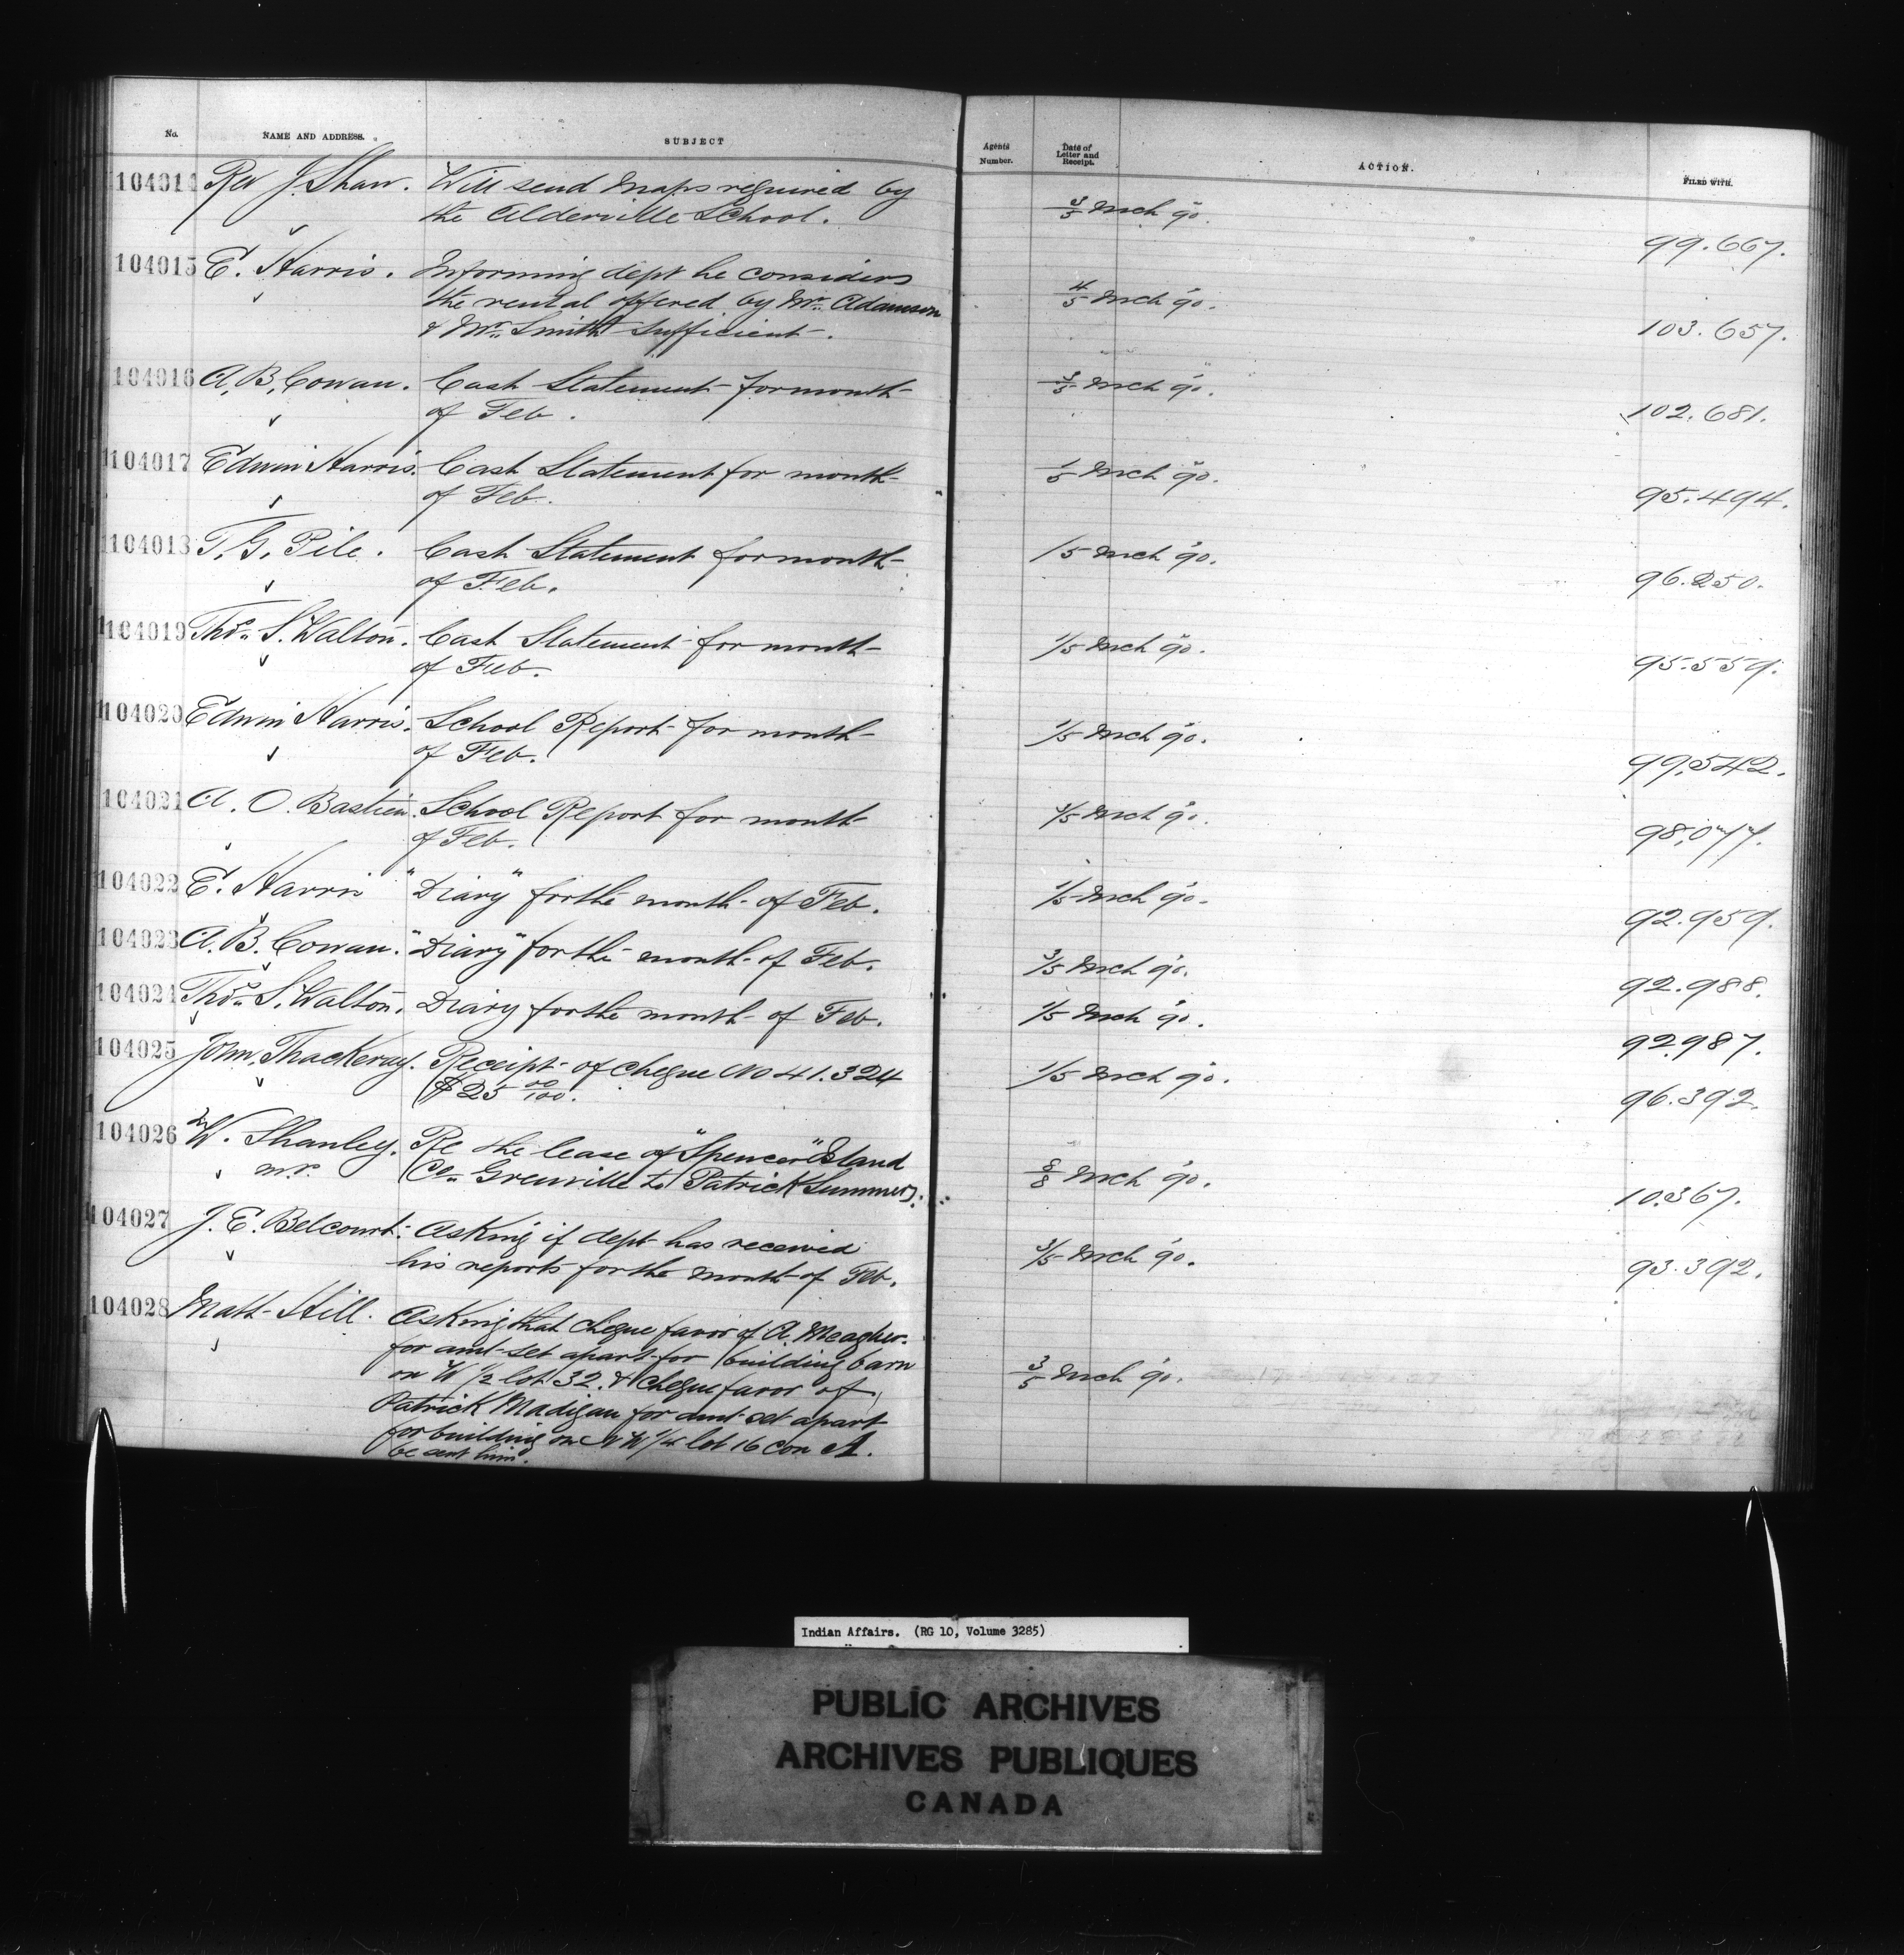 No. NAME AND ADDRESS. SUBJECT Agents Number. Date of Letter and Receipt. ACTION. FILED WITH.
104014 Rev J Shaw. Will send Maps required by
the Alderville School. 3/5 Mch 90. 99.667.
104015 E. Harris. Informing dept he considers
the rental offered by Mr. Adamson 4/5 Mch 90.
& Mr. Smith sufficient. 103.657.
104016 A. B. Cowan. Cash Statement for month 3/5 Mch 90.
of Feb. 102.681.
104017 Edwin Harris. Cash Statement for month 1/5 Mch 90.
of Feb. 95.494.
104018 T. G. Pile. Cash Statement for month 1/5 Mch 90.
of Feb. 96.250.
104019 Thos. S. Walton. Cash Statement for month 1/5 Mch 90.
of Feb. 95.559.
104020 Edwin Harris. School Report for month 1/5 Mch 90.
of Feb. 99,542.
104021 A. O. Bastien. School Report for month Mch 90.
of Feb. 98,077.
104022 E. Harris "Diary" for the month of Feb. 1/5 Mch 90. 92.959.
104023 A. B. Cowan. "Diary" for the month of Feb. 3/5 Mch 90. 92.988.
104024 Thos. S. Walton. Diary for the month of Feb. 1/5 Mch 90. 92.987.
104025 John Thackeray. Receipt of cheque No 41.324 1/5 Mch 90.
$25 00/100. 96.392.
104026 W. Shanley. Re the lease of "Spencer" Island
m.r. Co. Grenville to Patrick Summers. 8/8 Mch 90. 10.367.
104027 J. E. Belcourt. Asking if dept has received 3/5 Mch 90.
his reports for the month of Feb. 93.392.
104028 Matt Hill. Asking that cheque favor of A. Meagher
for amt set apart for building barn
on W 1/2 lot 32. & cheque favor of 3/5 Mch 90.
Patrick Madigan for amt set apart
for building on N W 1/4 lot 16 con A.
be sent him.
Indian Affairs. (RG 10, Volume 3285)
PUBLIC ARCHIVES
ARCHIVES PUBLIQUES
CANADA